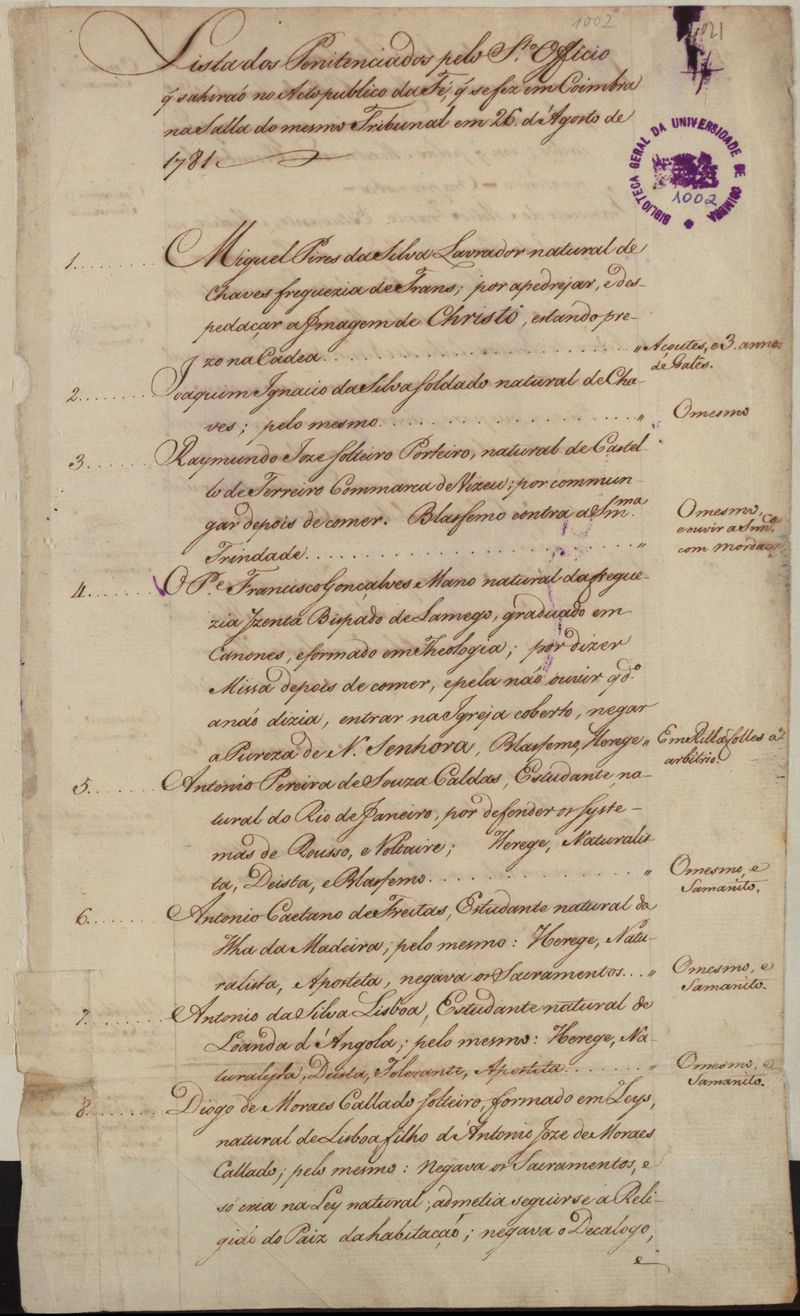 1002
Lista dos Penitenciados pelo S.to Officio
q̃ sahiraõ no Acto publico da Fé, q̃ se fez em Coimbra
na Salla do mesmo Tribunal em 26. d'Agosto de
1781.
BIBLIOTECA GERAL DA UNIVERSIDADE DE COIMBRA
1002
1........ Miguel Pires da Silva Lavrador natural de
Chaves freguezia de Trans; por apedrejar, e des-
pedaçar a Jmagem de Christo, estando pre-
zo na Cadea.............................. " Açoutes, e 3. annos
de Gales.
2........ Joaquim Ignacio da Silva Soldado natural de Cha-
ves; pelo mesmo...................... " O mesmo
3........ Raymundo Joze Solteiro Porteiro, natural de Castel-
lo de Ferreiro Commarca de Vizeu; por commun-
gar depois de comer. Blasfemo contra a S.m.ma
Trindade.............................. " O mesmo,
e ouvir a Snn.ca
com mordaça
4........ O P.e Francisco Goncalves Mano natural da fregue-
zia Jzenta Bispado de Lamego, graduado em
Canones, e formado em Theologia; por dizer
Missa depois de comer, e pela naõ ouvir qd.o
a naõ dizia, entrar na Igreja coberto, negar
a Pureza de N. Senhora, Blasfemo, Herege " Em Rilhafolles a
arbitrio
5........ Antonio Pereira de Souza Caldas, Estudante, na-
tural do Rio de Janeiro, por defender os syste-
mas de Rousso, e Voltaire; Herege, Naturalis-
ta, Deista, e Blasfemo.................... " O mesmo, e
Samanito.
6........ Antonio Caetano de Freitas, Estudante natural da
Ilha da Madeira; pelo mesmo: Herege, Natu-
ralista, Aposteta, negava os Sacramentos... " O mesmo, e
Samanito.
7........ Antonio da Silva Lisboa, Estudante natural de
Loanda d'Angola; pelo mesmo: Herege, Na-
turalysta, Deista, Tolerante, Aposteta........ " O mesmo, e
Samanito.
8........ Diogo de Moraes Callado Solteiro, formado em Leys,
natural de Lisboa filho d'Antonio Joze de Moraes
Callado; pelo mesmo: Negava os Sacramentos, e
só cria na Ley natural; admetia seguirse a Reli-
giaõ do Paiz da habitaçaõ; negava o Decalogo,
e